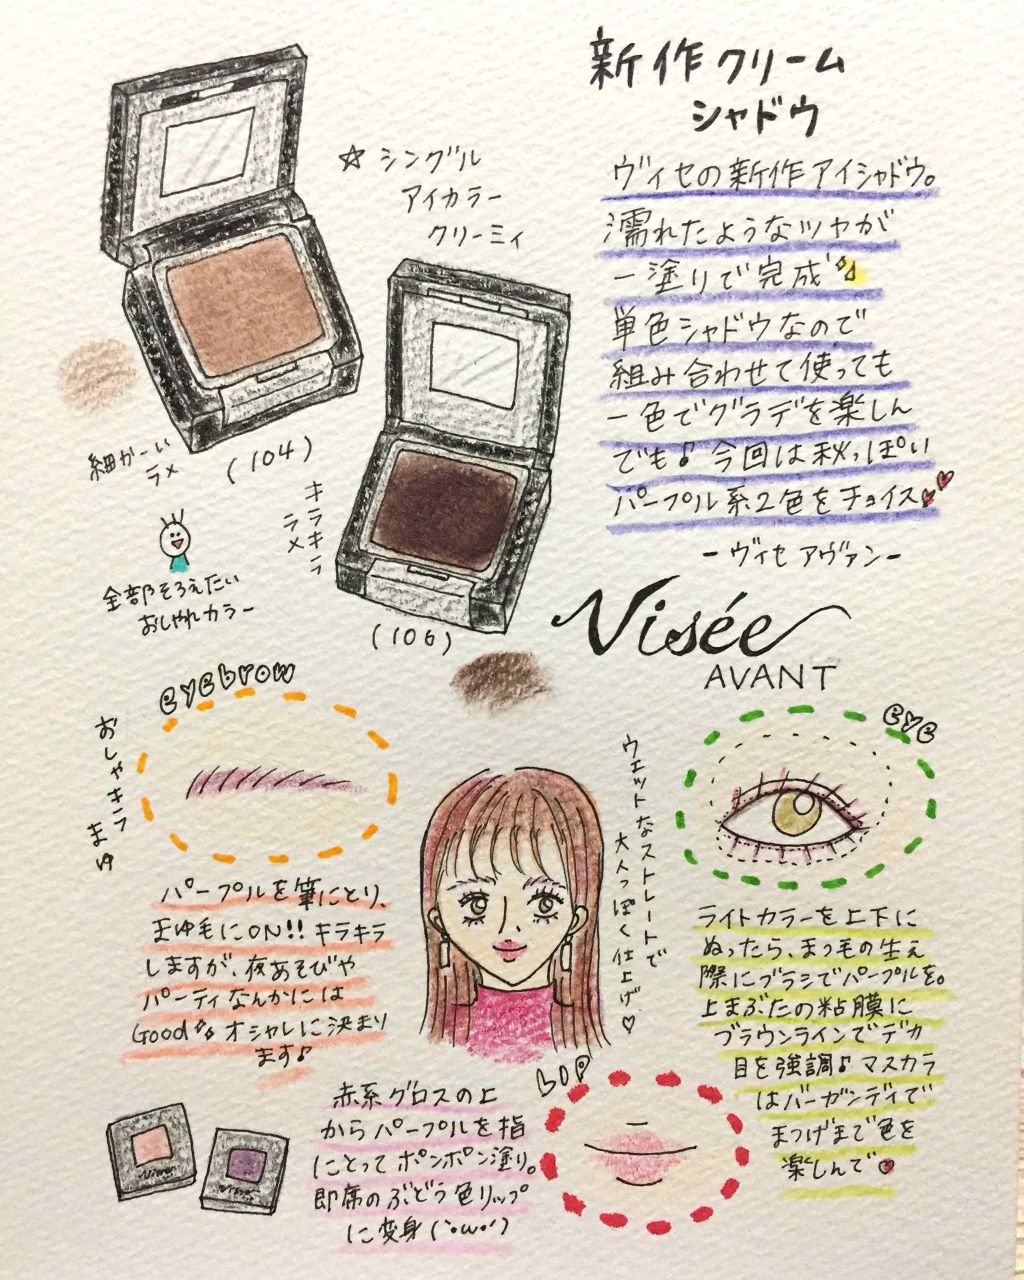 新作クリーム
シャドウ
☆ シングル
アイカラー
クリーミィ
ヴィセの新作アイシャドウ。
濡れたようなツヤが
一塗りで完成
単色シャドウなので
組み合わせて使っても
一色でグラデを楽しん
でも♪今回は秋っぽい
パープル系2色をチョイス
ーヴィセ アヴァンー
Visée
AVANT
細かーい
ラメ
(104)
キラキラ
ラメ
(106)
全部そろえたい
おしゃれカラー
eyebrow
おしゃキラ
まゆ
パープルを筆にとり、
まゆ毛にON!! キラキラ
しますが、夜あそびや
パーティなんかには
Good オシャレに決まり
ます♪
ウェットなストレートで
大人っぽく仕上げ♡
eye
ライトカラーを上下に
ぬったら、まつ毛の生え
際にブラシでパープルを。
上まぶたの粘膜に
ブラウンラインでデカ
目を強調♪マスカラ
はバーガンディで
まつげまで色を
楽しんで
LIP
赤系グロスの上
からパープルを指
にとってポンポン塗り。
即席のぶどう色リップ
に変身(・ω・)